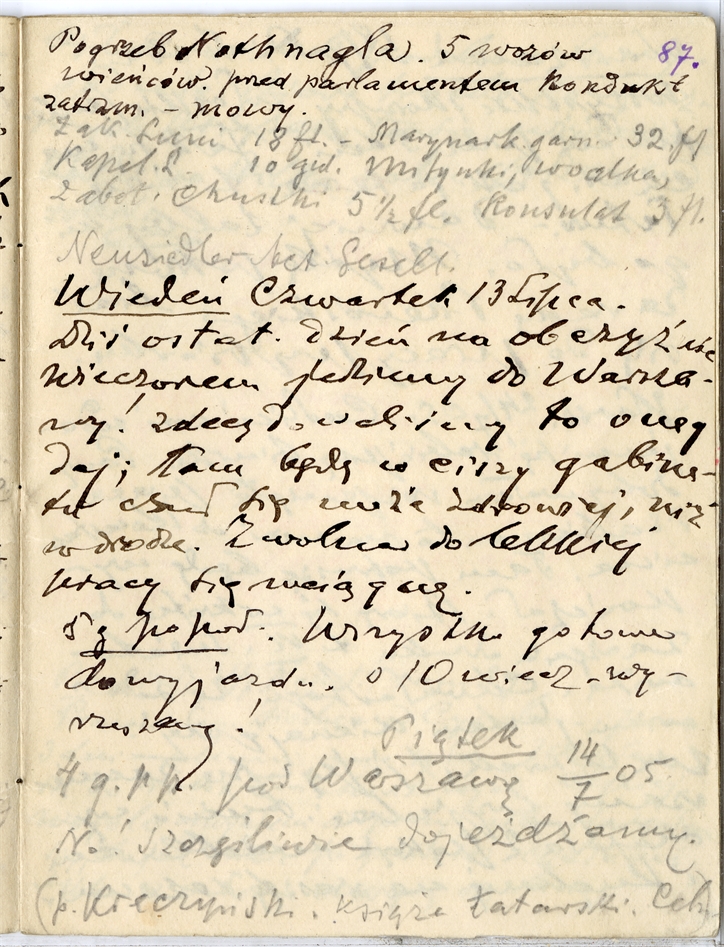 Pogrzeb Nothnagla. 5 wozów 87.
wieńców. przed parlamentem Kondukt
zatrzm. – mowy.
Zak. Luni 18 fl. – Marynark. garn. 32. fl
Kapel. 2. 10 gul. Mitynki, woalka,
żabot. chustki 5 1/2 fl. Konsulat 3 fl.
Neusiedler Act. Gesell.
Wiedeń Czwartek 13 Lipca.
Dziś ostat. dzień na obczyźnie
wieczorem jedziemy do Warsza-
wy! zdecydowaliśmy to oneg
daj; tam będę w ciszy gabine-
tu czuł się może zdrowiej, niż
w drodze. Zwolna do lekkiej
pracy się wciągnę.
5 g popoł. Wszystko gotowe
do wyjazdu. o 10 wiecz. wy-
ruszamy!
Piątek
4 g. pp. pod Warszawą 14/7 05.
No! szczęśliwie dojeżdżamy.
(p. Kreczyński. książe tatarski.